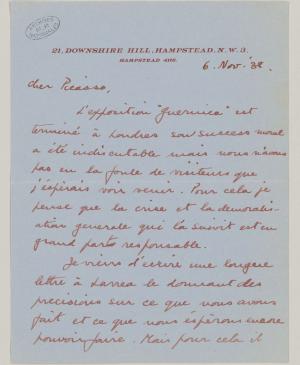 21, DOWNSHIRE HILL, HAMPSTEAD, N.W.3.
HAMPSTEAD
6 Nov. 38
cher Picasso,
L'exposition "Guernica" est
terminé à Londres son success moral
a été indiscutable mais nous n'avons
pas eu la foule de visiteurs que
j'espérais voir venir. Pour cela je
pense que la crise et la demoralis-
ation generale qui l'a suivit est en
grand parts responsable.
Je viens d'écrire une longue
lettre à Larrea le donnant des
precisions sur ce que nous avons
fait et ce que nous éspérons encore
pouvoir faire. Mais pour cela il